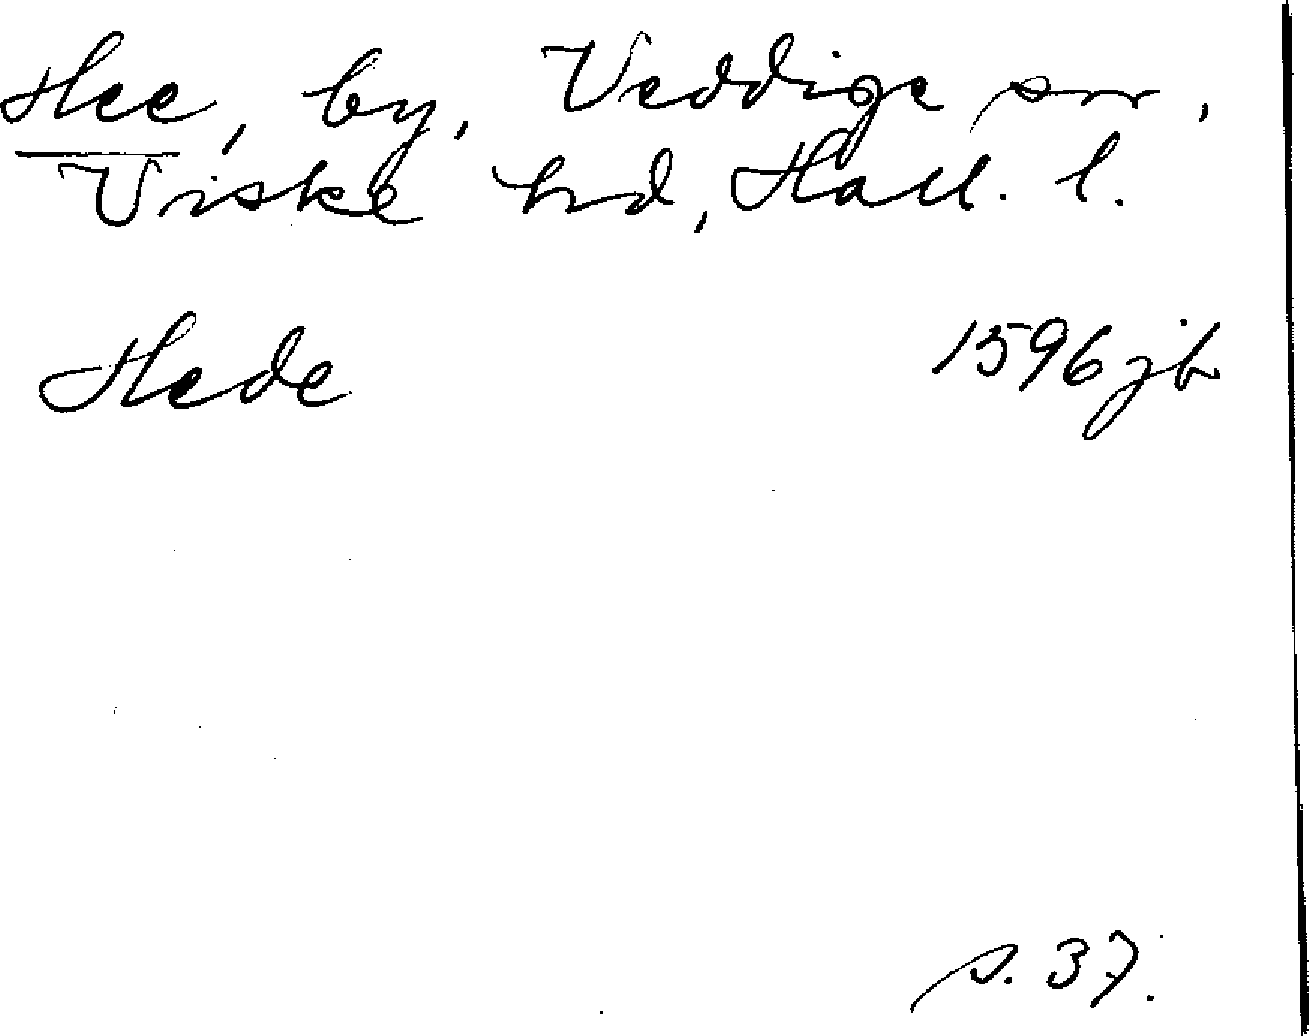 Hee, by, Veddige sn,
Viske hd, Hall. l.
Hede 1596 jb
s. 37.